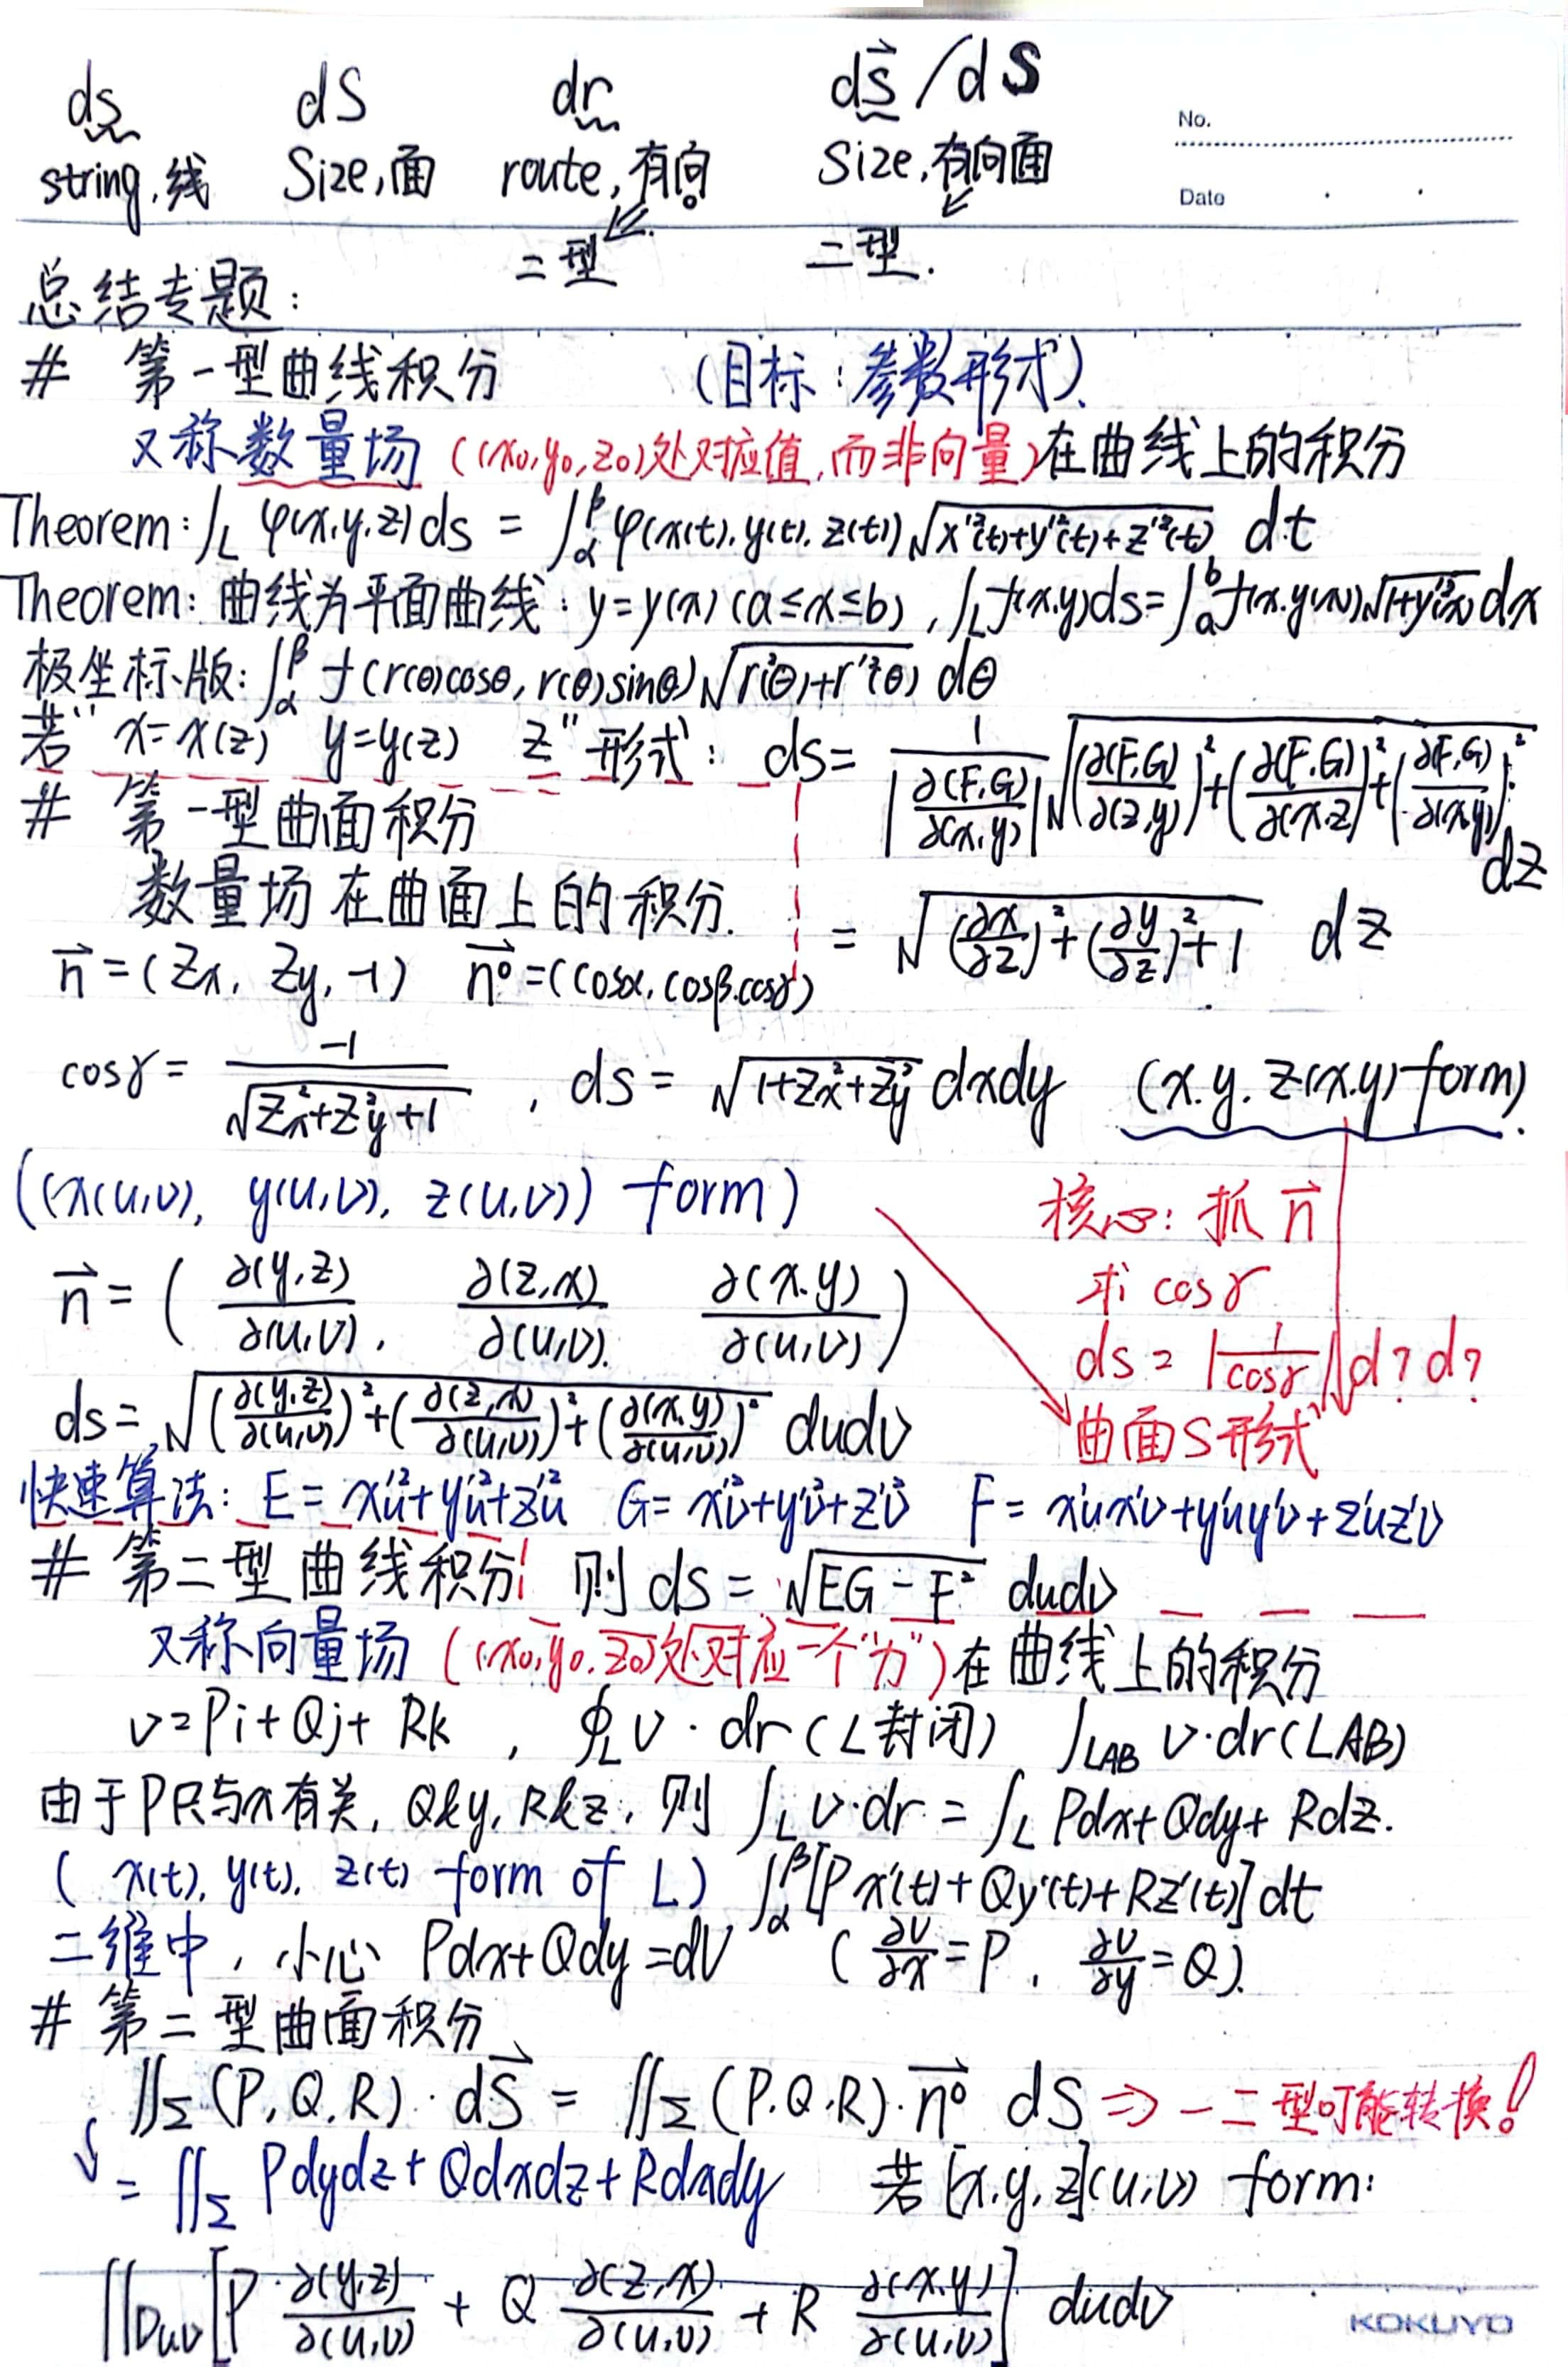 ds dS dr dS⃗/dS
string,线 Size,面 route,有向 Size,有向面
No.
Date
二型 二型.
总结专题:
# 第一型曲线积分 (目标:参数形式).
又称数量场 ((x₀,y₀,z₀)处对应值,而非向量)在曲线上的积分
Theorem: ∫_L φ(x,y,z)ds = ∫_α^β φ(x(t),y(t),z(t))√(x'²(t)+y'²(t)+z'²(t)) dt
Theorem: 曲线为平面曲线: y=y(x) (a≤x≤b), ∫_L f(x,y)ds=∫_a^b f(x,y(x))√(1+y'²(x)) dx
极坐标版: ∫_α^β f(r(θ)cosθ, r(θ)sinθ)√(r²(θ)+r'²(θ)) dθ
若"x=x(z) y=y(z) z"形式: ds= 1/|∂(F,G)/∂(x,y)| √((∂(F,G)/∂(z,y))²+(∂(F,G)/∂(x,z))²+(∂(F,G)/∂(x,y))²) dz
# 第一型曲面积分
数量场在曲面上的积分. = √((∂x/∂z)²+(∂y/∂z)²+1) dz
n⃗=(Zx, Zy, -1) n⃗°=(cosα, cosβ, cosγ)
cosγ= -1/√(Zx²+Zy²+1) , ds= √(1+Zx²+Zy²) dxdy (x.y. z(x.y) form).
((x(u,v), y(u,v), z(u,v)) form)
核心: 抓 n⃗
求 cosγ
ds=|1/cosγ| d? d?
曲面S形式
n⃗ = (∂(y,z)/∂(u,v), ∂(z,x)/∂(u,v), ∂(x,y)/∂(u,v))
ds= √((∂(y,z)/∂(u,v))²+(∂(z,x)/∂(u,v))²+(∂(x,y)/∂(u,v))²) dudv
快速算法: E= x'u²+y'u²+z'u² G= x'v²+y'v²+z'v² F= x'ux'v+y'uy'v+z'uz'v
# 第二型曲线积分 则 dS= √(EG-F²) dudv
又称向量场 ((x₀,y₀,z₀)处对应一个"力")在曲线上的积分
v=Pi+Qj+Rk , ∮_L v·dr (L封闭) ∫_LAB v·dr(LAB)
由于P只与x有关, Q&y, R&z, 则 ∫_L v·dr = ∫_L Pdx+Qdy+Rdz.
(x(t), y(t), z(t) form of L) ∫_α^β [Px'(t)+Qy'(t)+Rz'(t)]dt
二维中, 小心 Pdx+Qdy=dU (∂U/∂x=P, ∂U/∂y=Q).
# 第二型曲面积分
∬_Σ (P,Q,R)·dS⃗ = ∬_Σ (P,Q,R)·n⃗° dS ⇒ 一二型可能转换!
= ∬_Σ Pdydz+Qdxdz+Rdxdy 若[x,y,z](u,v) form:
∬_Duv [P ∂(y,z)/∂(u,v) + Q ∂(z,x)/∂(u,v) + R ∂(x,y)/∂(u,v)] dudv
KOKUYO